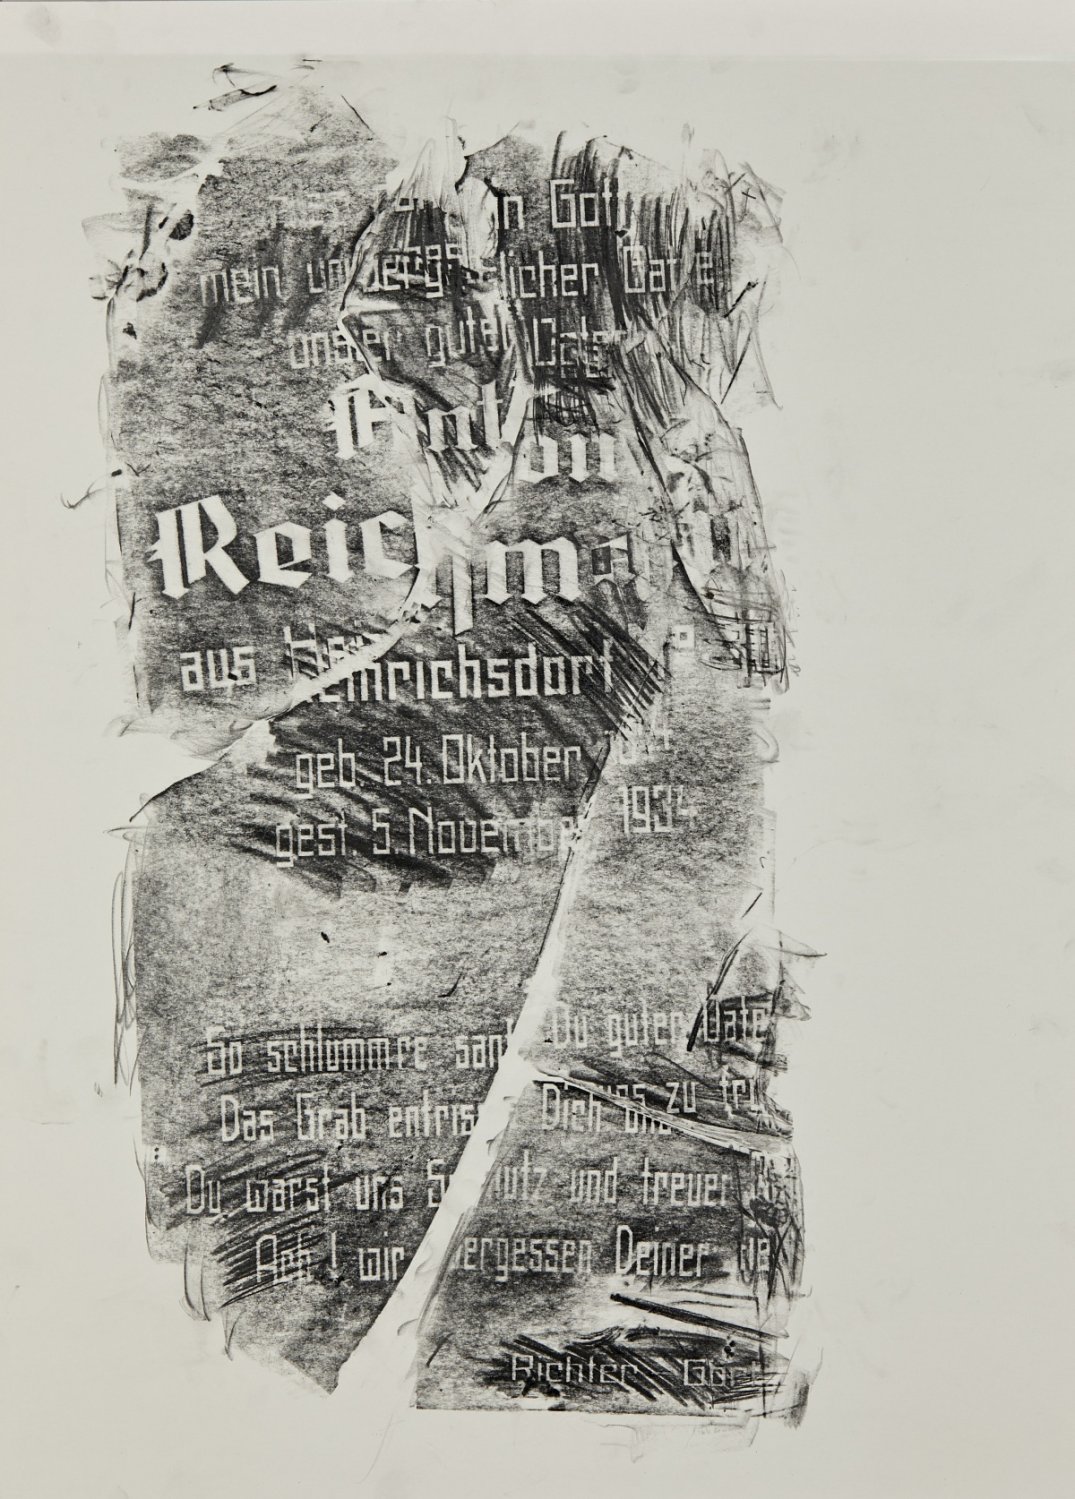 in Gott
mein unvergesslicher Gatte
unser guter Vater
Anton
Reichmann
aus Heinrichsdorf
geb. 24. Oktober
gest. 5. November 1934
So schlummre sanft Du guter Vate
Das Grab entris Dich uns zu
Du warst uns Schutz und treuer
Ach! wir vergessen Deiner nie
Richter